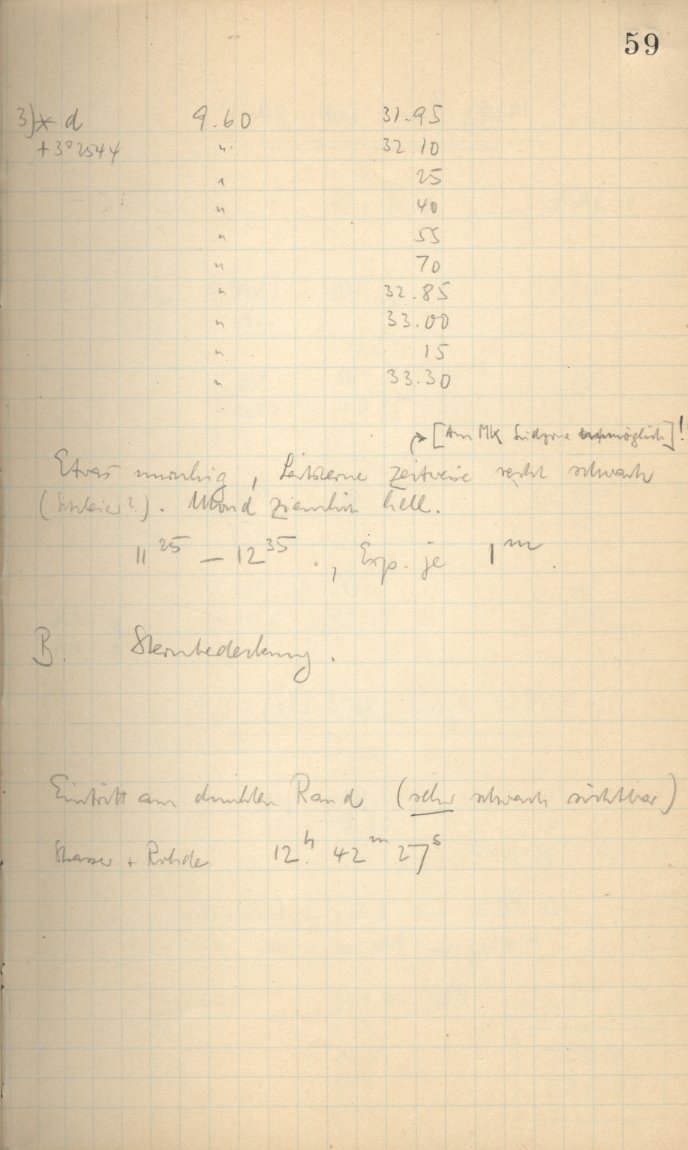 59
3) * d 9.60 31.95
+3° 2544 " 32 10
" 25
" 40
" 55
" 70
" 32.85
" 33.00
" 15
" 33.30
[Am MK möglich]!
Etwas unruhig, Leitsterne zeitweise recht schwach
(Schleier?). Mond ziemlich hell.
11 25 – 12 35., Exp. je 1 m.
B. Sternbedeckung.
Eintritt am dunklen Rand (sehr schwach sichtbar)
+ Rohde 12h. 42m 27s